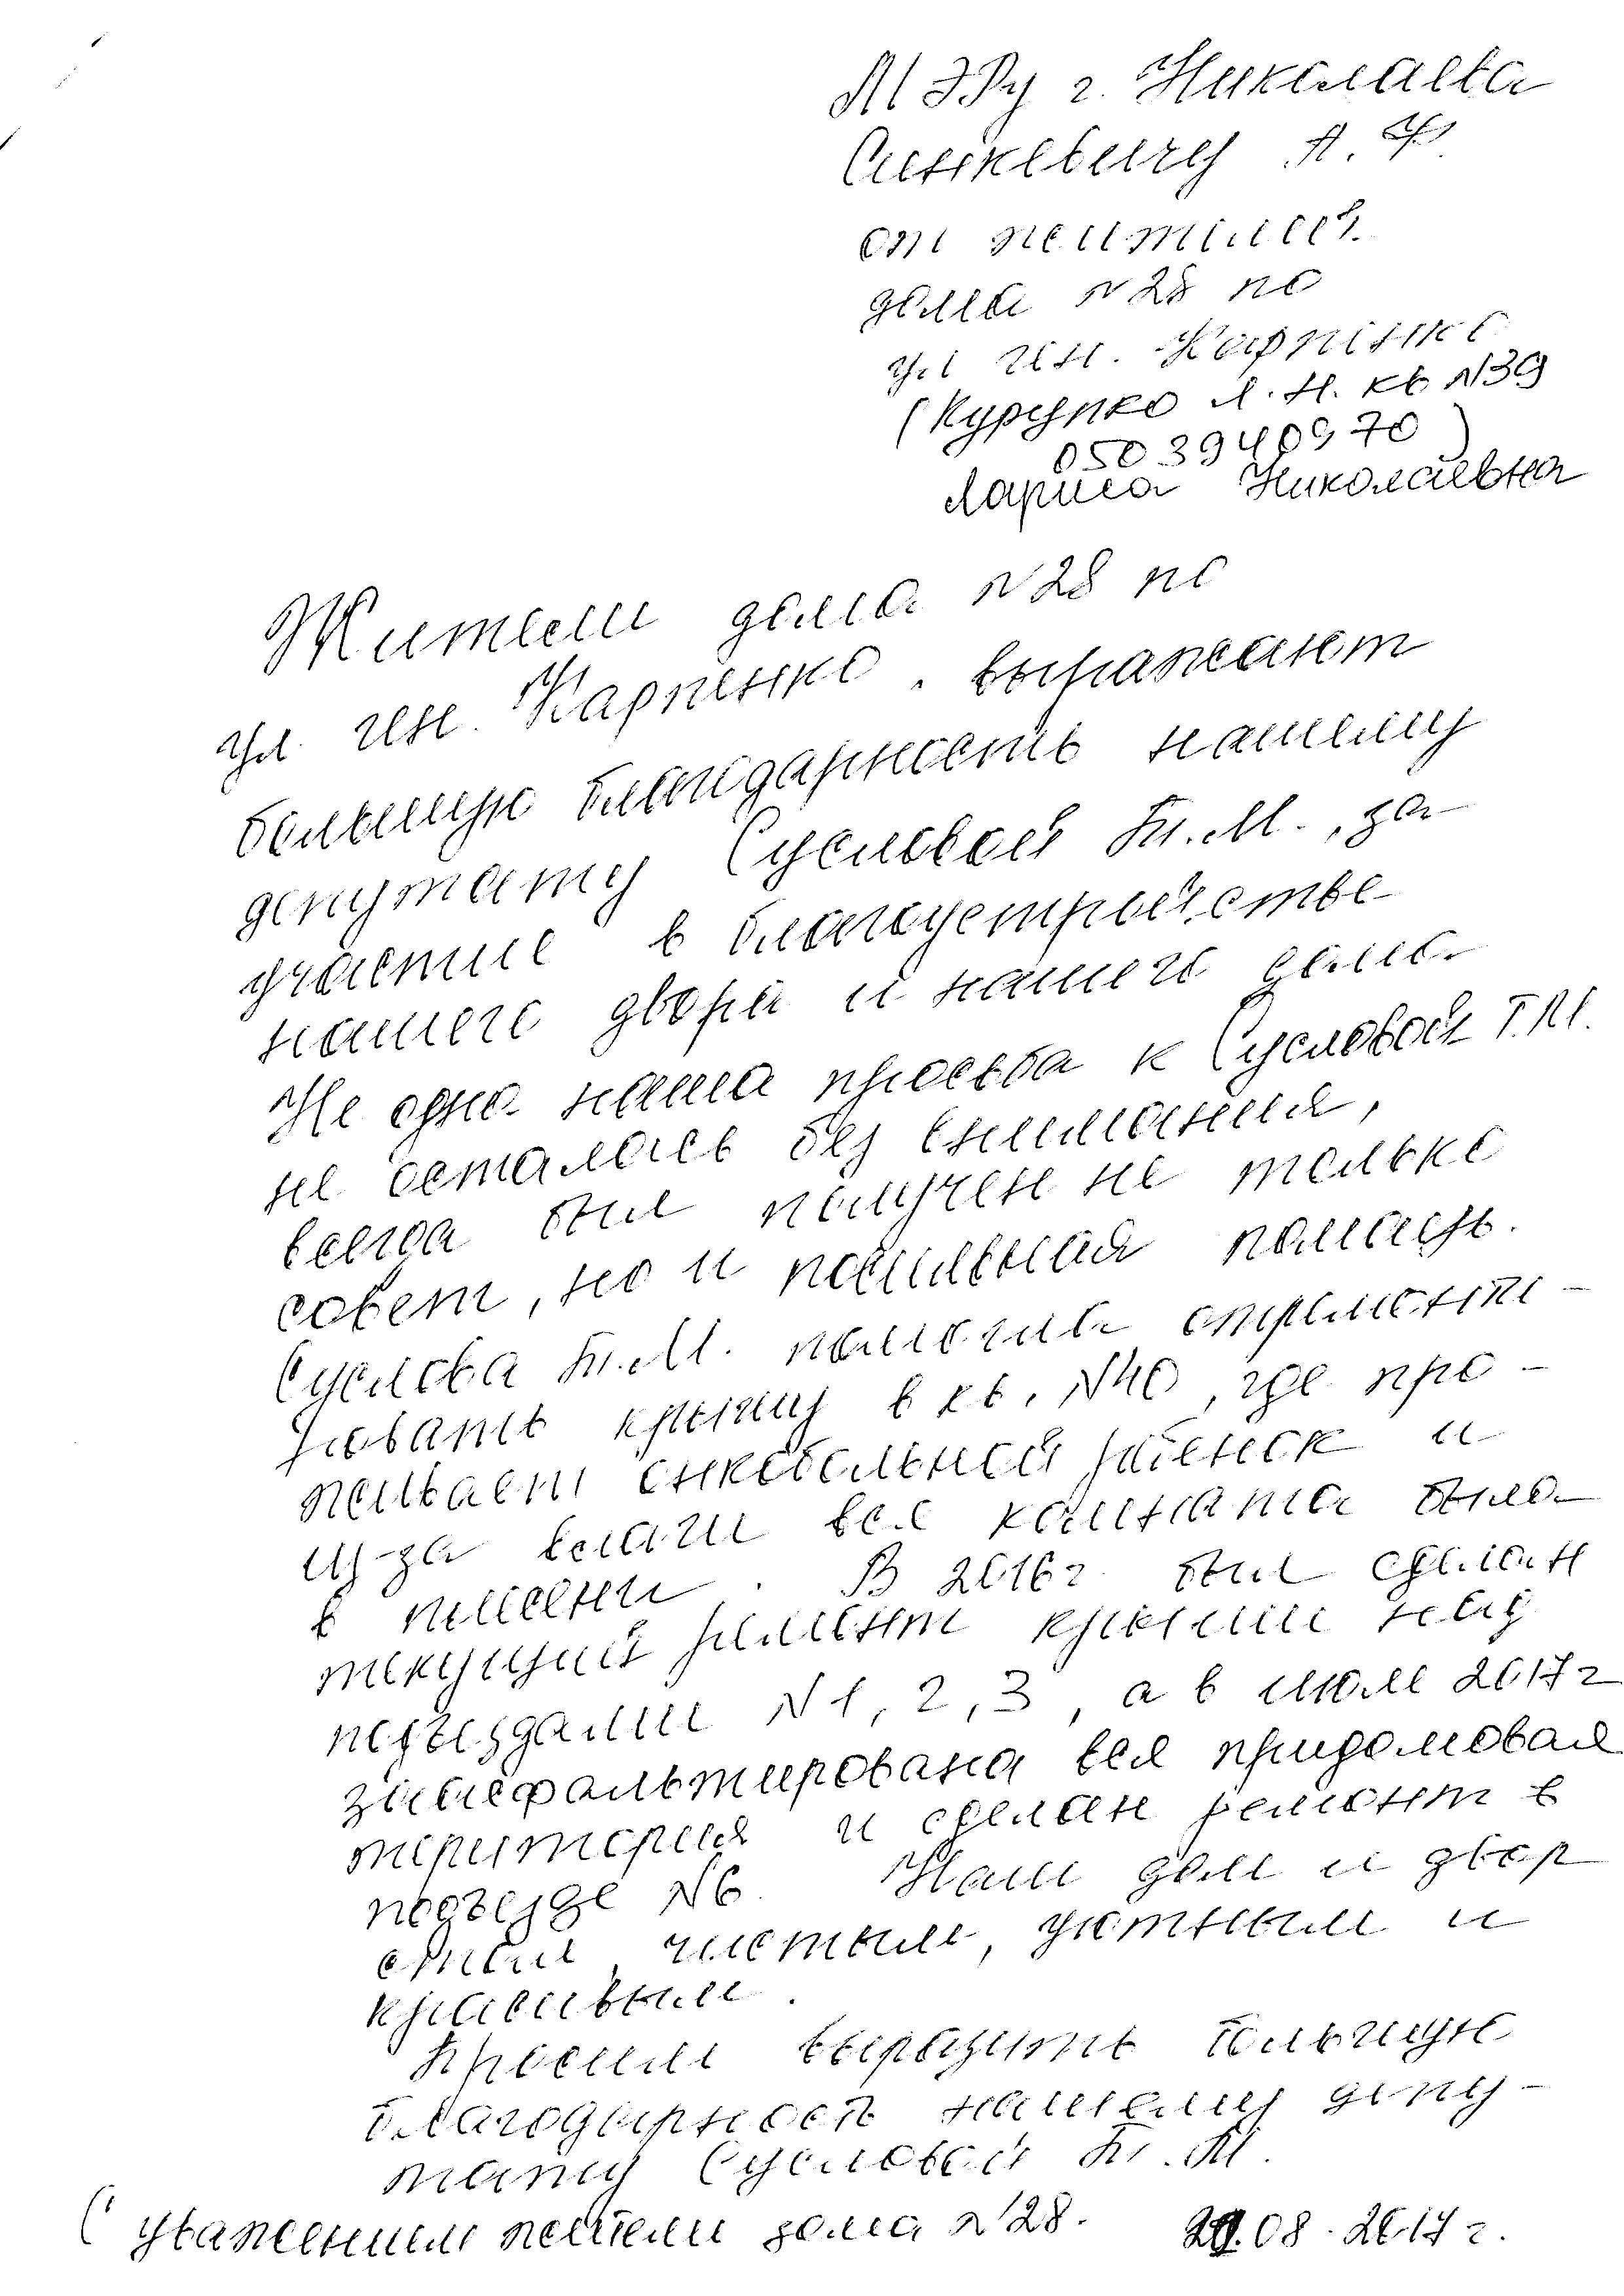 МЭРу г. Николаева
Сенкевичу А. Ф
от жителей
дома N28 по
ул ген. Карпенко
(Курупко Л. Н. кв N39
0503940970)
Лариса Николаевна
Жители дома N28 по
ул. ген. Карпенко, выражают
большую благодарность нашему
депутату Сусловой Т.М., за
участие в благоустройстве
нашего двора и нашего дома.
Не одна наша просьба к Сусловой Т.М.
не осталась без внимания,
всегда был получен не только
совет, но и посильная помощь.
Суслова Т.М. помогла отремонти-
ровать крышу в кв. N40, где про-
живает онкобольной ребенок и
из-за влаги вся комната была
в плесени. В 2016г был сделан
текущий ремонт кровли над
подъездами N1, 2, 3, а в июле 2017г
заасфальтирована вся придомовая
територия и сделан ремонт в
подъезде N6. Наш дом и двор
стал чистым, уютным и
красивым.
Просим выразить большую
благодарность нашему депу-
тату Сусловой Т.М.
С уважением жители дома N28. 08.2017г.